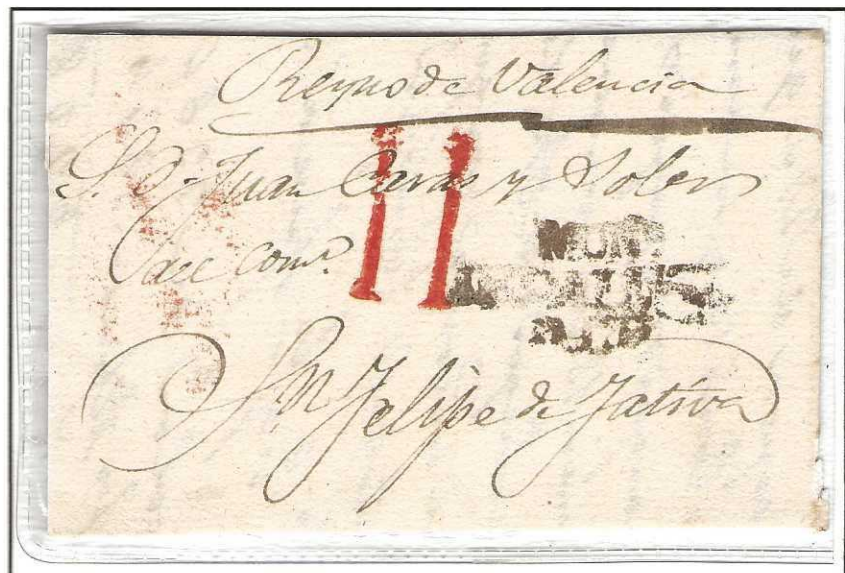 Reyno de Valencia
S. D. Juan y Soler
del com.º
11
Sn Felipe de Jativa